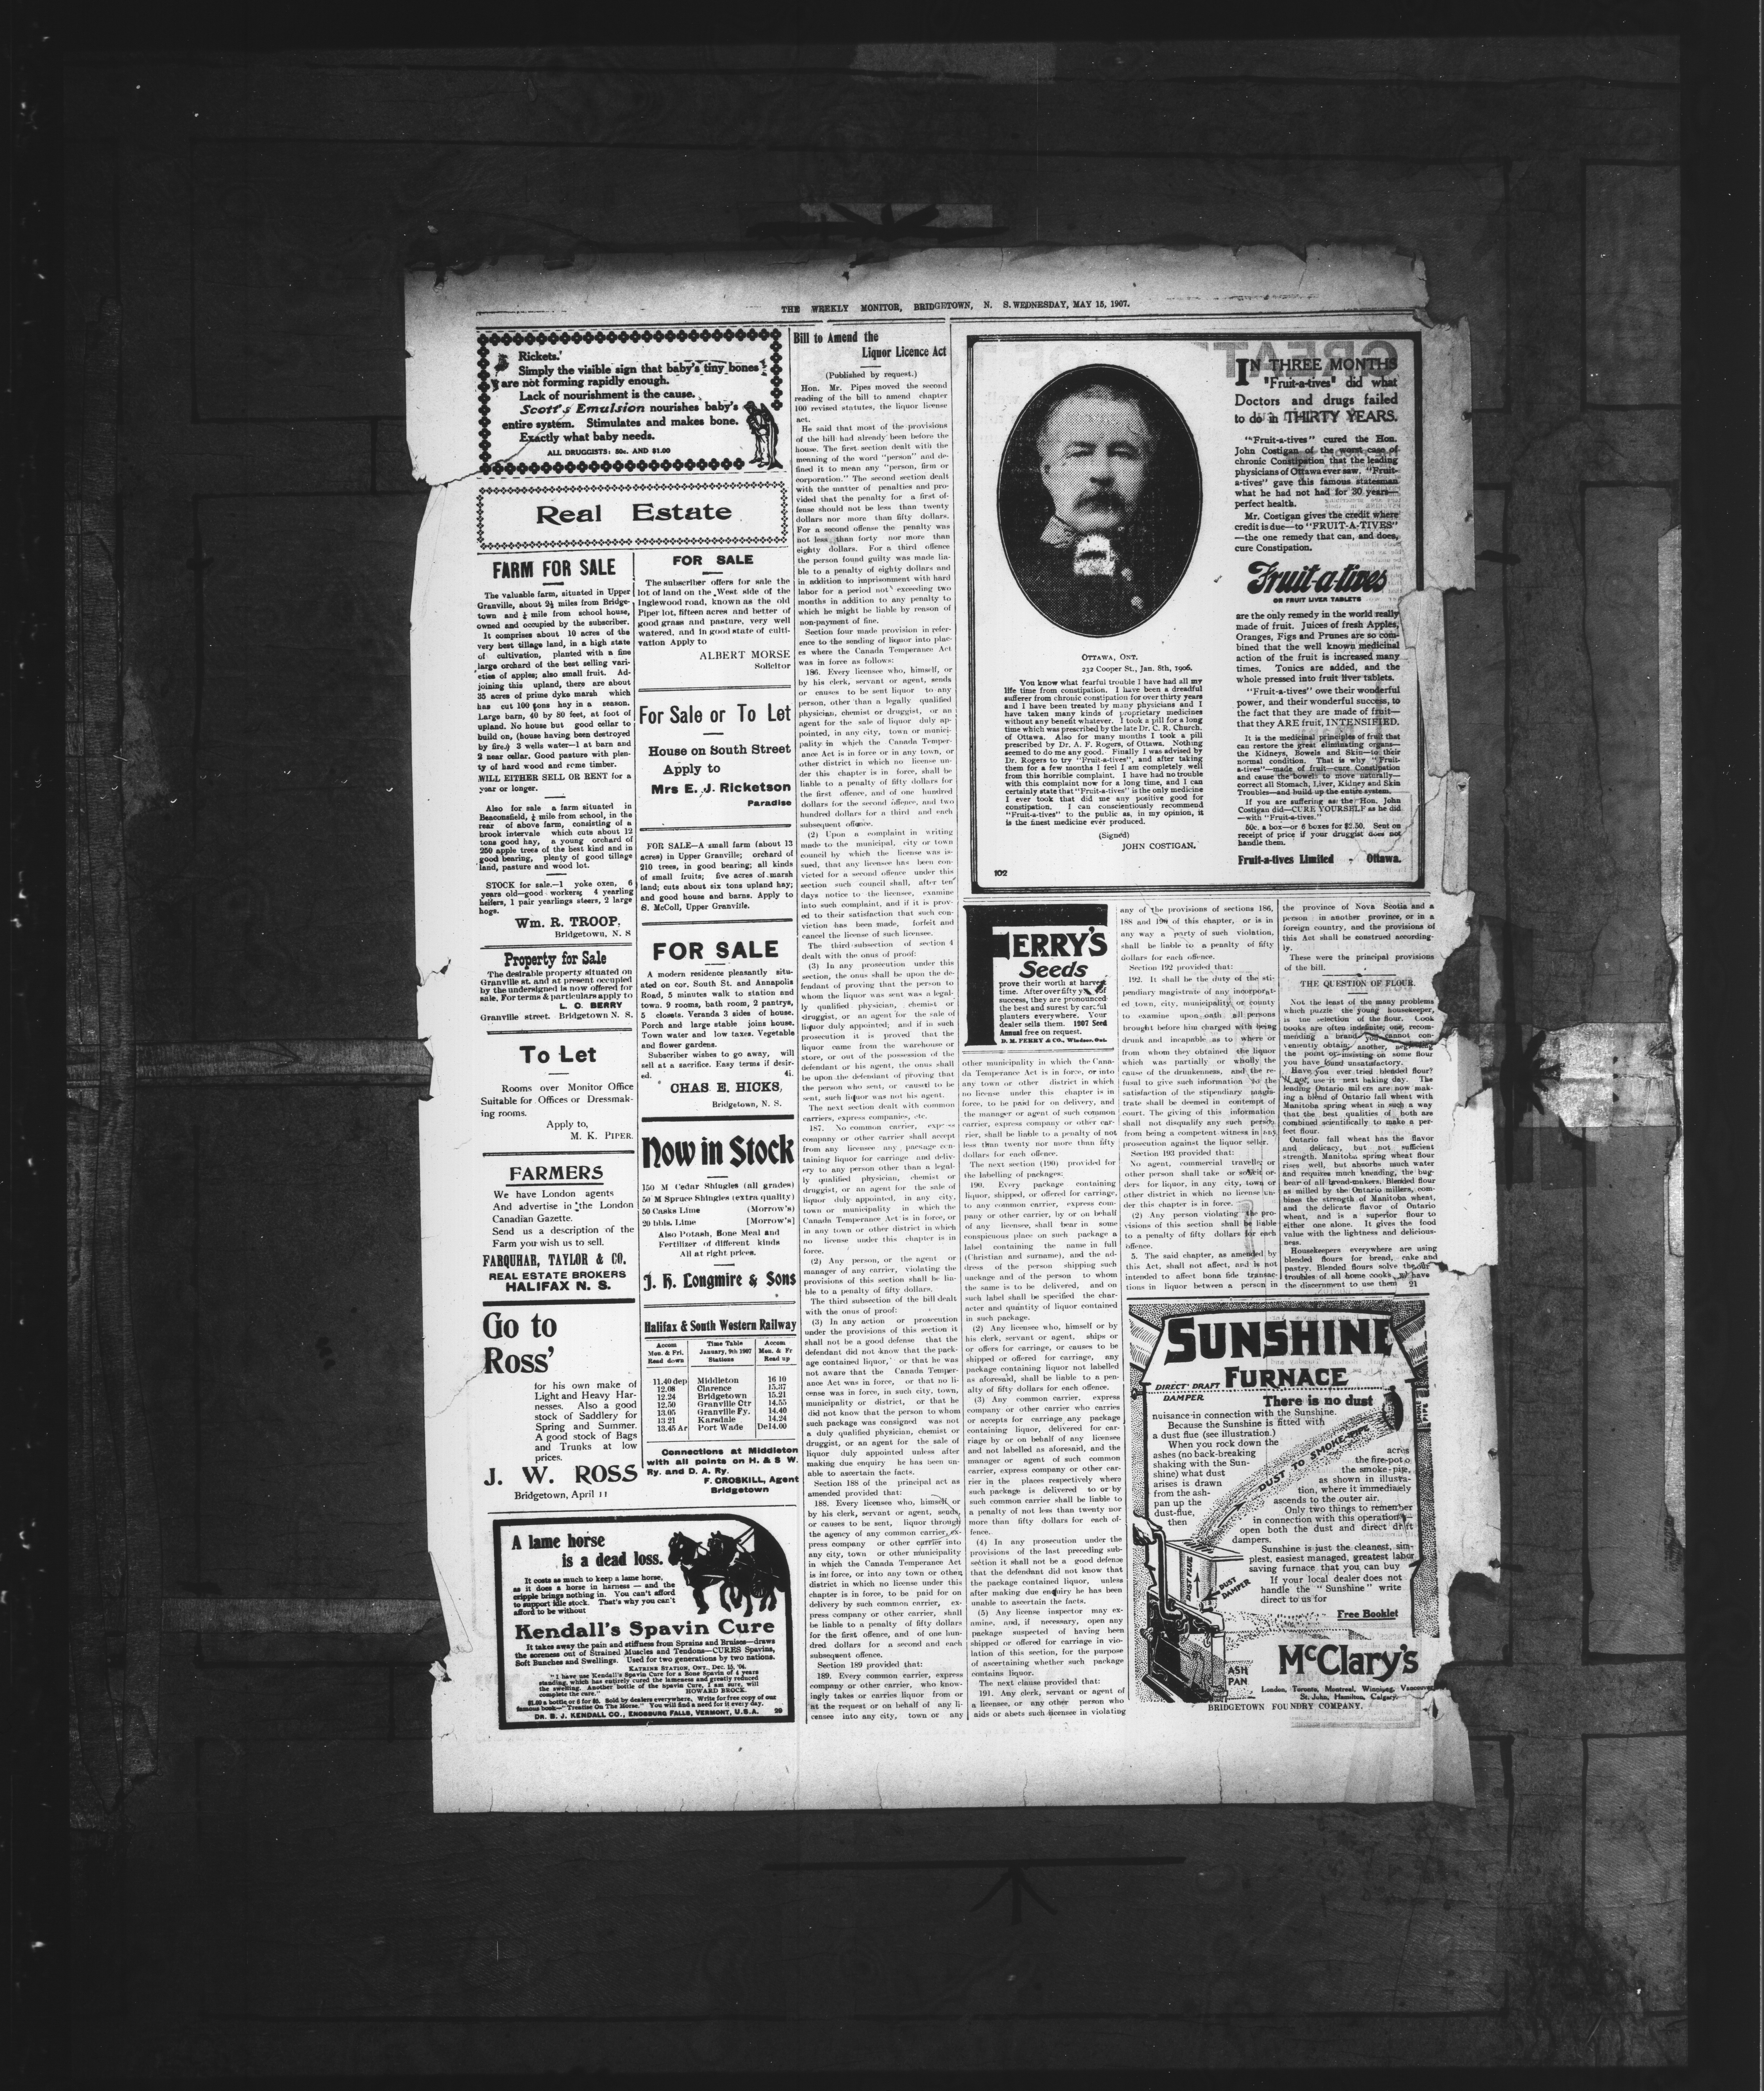 THE WEEKLY MONITOR, BRIDGETOWN, N. S. WEDNESDAY, MAY 15, 1907.
Rickets.
Simply the visible sign that baby's tiny bones
are not forming rapidly enough.
Lack of nourishment is the cause.
Scott's Emulsion nourishes baby's
entire system. Stimulates and makes bone.
Exactly what baby needs.
ALL DRUGGISTS: 50c. AND $1.00
Real Estate
FARM FOR SALE
The valuable farm, situated in Upper
Granville, about 2½ miles from Bridge-
town and ¼ mile from school house,
owned and occupied by the subscriber.
It comprises about 10 acres of the
very best tillage land, in a high state
of cultivation, planted with a fine
large orchard of the best selling vari-
eties of apples; also small fruit. Ad-
joining this upland, there are about
35 acres of prime dyke marsh which
has cut 100 tons hay in a season.
Large barn, 40 by 80 feet, at foot of
upland. No house but good cellar to
build on, (house having been destroyed
by fire.) 3 wells water—1 at barn and
2 near cellar. Good pasture with plen-
ty of hard wood and some timber.
WILL EITHER SELL OR RENT for a
year or longer.
Also for sale a farm situated in
Beaconsfield, ¼ mile from school, in the
rear of above farm, consisting of a
brook intervale which cuts about 12
tons good hay, a young orchard of
250 apple trees of the best kind and in
good bearing, plenty of good tillage
land, pasture and wood lot.
STOCK for sale.—1 yoke oxen, 6
years old—good workers; 4 yearling
heifers, 1 pair yearlings steers, 2 large
hogs.
Wm. R. TROOP,
Bridgetown, N. S
Property for Sale
The desirable property situated on
Granville st. and at present occupied
by the undersigned is now offered for
sale. For terms & particulars apply to
L. O. BERRY
Granville street. Bridgetown N. S.
To Let
Rooms over Monitor Office
Suitable for Offices or Dressmak-
ing rooms.
Apply to,
M. K. PIPER.
FARMERS
We have London agents
And advertise in the London
Canadian Gazette.
Send us a description of the
Farm you wish us to sell.
FARQUHAR, TAYLOR & CO.
REAL ESTATE BROKERS
HALIFAX N. S.
Go to
Ross'
for his own make of
Light and Heavy Har-
nesses. Also a good
stock of Saddlery for
Spring and Summer.
A good stock of Bags
and Trunks at low
prices.
J. W. ROSS
Bridgetown, April 11
FOR SALE
The subscriber offers for sale the
lot of land on the West side of the
Inglewood road, known as the old
Piper lot, fifteen acres and better of
good grass and pasture, very well
watered, and in good state of culti-
vation Apply to
ALBERT MORSE
Solicitor
For Sale or To Let
House on South Street
Apply to
Mrs E. J. Ricketson
Paradise
FOR SALE—A small farm (about 13
acres) in Upper Granville; orchard of
210 trees, in good bearing; all kinds
of small fruits; five acres of marsh
land; cuts about six tons upland hay;
and good house and barns. Apply to
S. McColl, Upper Granville.
FOR SALE
A modern residence pleasantly situ-
ated on cor. South St. and Annapolis
Road, 5 minutes walk to station and
town. 9 rooms, bath room, 2 pantrys,
5 closets. Veranda 3 sides of house.
Porch and large stable joins house.
Town water and low taxes. Vegetable
and flower gardens.
Subscriber wishes to go away, will
sell at a sacrifice. Easy terms if desir-
ed. 4i.
CHAS. E. HICKS,
Bridgetown, N. S.
Now in Stock
150 M Cedar Shingles (all grades)
50 M Spruce Shingles (extra quality)
50 Casks Lime (Morrow's)
20 bbls. Lime [Morrow's]
Also Potash, Bone Meal and
Fertilizer of different kinds
All at right prices.
J. H. Longmire & Sons
Halifax & South Western Railway
Accom Mon. & Fri. Read down
Time Table January, 9th 1907 Stations
Accom Mon. & Fr Read up
11.40 dep Middleton 16 10
12.08 Clarence 15.37
12.24 Bridgetown 15.21
12.50 Granville Ctr 14.55
13.05 Granville Fy. 14.40
13 21 Karsdale 14.24
13.45 Ar Port Wade De14.00
Connections at Middleton
with all points on H. & S W.
Ry. and D. A. Ry.
F. CROSKILL, Agent
Bridgetown
A lame horse
is a dead loss.
It costs as much to keep a lame horse,
as it does a horse in harness — and the
cripple brings nothing in. You can't afford
to support idle stock. That's why you can't
afford to be without
Kendall's Spavin Cure
It takes away the pain and stiffness from Sprains and Bruises—draws
the soreness out of Strained Muscles and Tendons—CURES Spavins,
Soft Bunches and Swellings. Used for two generations by two nations.
KATRINE STATION, ONT., Dec. 15, '04.
"I have use Kendall's Spavin Cure for a Bone Spavin of 4 years
standing, which has entirely cured the lameness and greatly reduced
the swelling. Another bottle of the Spavin Cure, I am sure, will
complete the cure." HOWARD BROCK.
$1.00 a bottle or 6 for $5. Sold by dealers everywhere. Write for free copy of our
famous book—"Treatise On The Horse." You will find a need for it every day.
DR. B. J. KENDALL CO., ENOSBURG FALLS, VERMONT, U.S.A. 20
Bill to Amend the
Liquor Licence Act
(Published by request.)
Hon. Mr. Pipes moved the second
reading of the bill to amend chapter
100 revised statutes, the liquor license
act.
He said that most of the provisions
of the bill had already been before the
house. The first section dealt with the
meaning of the word "person" and de-
fined it to mean any "person, firm or
corporation." The second section dealt
with the matter of penalties and pro-
vided that the penalty for a first of-
fense should not be less than twenty
dollars nor more than fifty dollars.
For a second offense the penalty was
not less than forty nor more than
eighty dollars. For a third offence
the person found guilty was made lia-
ble to a penalty of eighty dollars and
in addition to imprisonment with hard
labor for a period not exceeding two
months in addition to any penalty to
which he might be liable by reason of
non-payment of fine.
Section four made provision in refer-
ence to the sending of liquor into plac-
es where the Canada Temperance Act
was in force as follows:
186. Every licensee who, himself, or
by his clerk, servant or agent, sends
or causes to be sent liquor to any
person, other than a legally qualified
physician, chemist or druggist, or an
agent for the sale of liquor duly ap-
pointed, in any city, town or munici-
pality in which the Canada Temper-
ance Act is in force or in any town, or
other district in which no license un-
der this chapter is in force, shall be
liable to a penalty of fifty dollars for
the first offence, and of one hundred
dollars for the second offence, and two
hundred dollars for a third and each
subsequent offence.
(2) Upon a complaint in writing
made to the municipal, city or town
council by which the license was is-
sued, that any licensee has been con-
victed for a second offence under this
section such council shall, after ten
days notice to the licensee, examine
into such complaint, and if it is prov-
ed to their satisfaction that such con-
viction has been made, forfeit and
cancel the license of such licensee.
The third subsection of section 4
dealt with the onus of proof:
(3) In any prosecution under this
section, the onus shall be upon the de-
fendant of proving that the person to
whom the liquor was sent was a legal-
ly qualified physician, chemist or
druggist, or an agent for the sale of
liquor duly appointed; and if in such
prosecution it is proved that the
liquor came from the warehouse or
store, or out of the possession of the
defendant or his agent, the onus shall
be upon the defendant of proving that
the person who sent, or caused to be
sent, such liquor was not his agent.
The next section dealt with common
carriers, express companies, etc.
187. No common carrier, express
company or other carrier shall accept
from any licensee any package con-
taining liquor for carriage and deliv-
ery to any person other than a legal-
ly qualified physician, chemist or
druggist, or an agent for the sale of
liquor duly appointed, in any city,
town or municipality in which the
Canada Temperance Act is in force, or
in any town or other district in which
no license under this chapter is in
force.
(2) Any person, or the agent or
manager of any carrier, violating the
provisions of this section shall be lia-
ble to a penalty of fifty dollars.
The third subsection of the bill dealt
with the onus of proof:
(3) In any action or prosecution
under the provisions of this section it
shall not be a good defense that the
defendant did not know that the pack-
age contained liquor, or that he was
not aware that the Canada Temper-
ance Act was in force, or that no li-
cense was in force, in such city, town,
municipality or district, or that he
did not know that the person to whom
such package was consigned was not
a duly qualified physician, chemist or
druggist, or an agent for the sale of
liquor duly appointed unless after
making due enquiry he has been un-
able to ascertain the facts.
Section 188 of the principal act as
amended provided that:
188. Every licensee who, himself or
by his clerk, servant or agent, sends,
or causes to be sent, liquor through
the agency of any common carrier, ex-
press company or other carrier into
any city, town or other municipality
in which the Canada Temperance Act
is in force, or into any town or other
district in which no license under this
chapter is in force, to be paid for on
delivery by such common carrier, ex-
press company or other carrier, shall
be liable to a penalty of fifty dollars
for the first offence, and of one hun-
dred dollars for a second and each
subsequent offence.
Section 189 provided that:
189. Every common carrier, express
company or other carrier, who know-
ingly takes or carries liquor from or
at the request or on behalf of any li-
censee into any city, town or any
OTTAWA, ONT.
232 Cooper St., Jan. 8th, 1906.
You know what fearful trouble I have had all my
life time from constipation. I have been a dreadful
sufferer from chronic constipation for over thirty years
and I have been treated by many physicians and I
have taken many kinds of proprietary medicines
without any benefit whatever. I took a pill for a long
time which was prescribed by the late Dr. C. R. Church,
of Ottawa. Also for many months I took a pill
prescribed by Dr. A. F. Rogers, of Ottawa. Nothing
seemed to do me any good. Finally I was advised by
Dr. Rogers to try "Fruit-a-tives", and after taking
them for a few months I feel I am completely well
from this horrible complaint. I have had no trouble
with this complaint now for a long time, and I can
certainly state that "Fruit-a-tives" is the only medicine
I ever took that did me any positive good for
constipation. I can conscientiously recommend
"Fruit-a-tives" to the public as, in my opinion, it
is the finest medicine ever produced.
(Signed)
JOHN COSTIGAN.
102
IN THREE MONTHS
"Fruit-a-tives" did what
Doctors and drugs failed
to do in THIRTY YEARS.
"Fruit-a-tives" cured the Hon.
John Costigan of the worst case of
chronic Constipation that the leading
physicians of Ottawa ever saw. "Fruit-
a-tives" gave this famous statesman
what he had not had for 30 years—
perfect health.
Mr. Costigan gives the credit where
credit is due—to "FRUIT-A-TIVES"
—the one remedy that can, and does,
cure Constipation.
Fruit-a-tives
OR FRUIT LIVER TABLETS
are the only remedy in the world really
made of fruit. Juices of fresh Apples,
Oranges, Figs and Prunes are so com-
bined that the well known medicinal
action of the fruit is increased many
times. Tonics are added, and the
whole pressed into fruit liver tablets.
"Fruit-a-tives" owe their wonderful
power, and their wonderful success, to
the fact that they are made of fruit—
that they ARE fruit, INTENSIFIED.
It is the medicinal principles of fruit that
can restore the great eliminating organs—
the Kidneys, Bowels and Skin—to their
normal condition. That is why "Fruit-
a-tives"—made of fruit—cure Constipation
and cause the bowels to move naturally—
correct all Stomach, Liver, Kidney and Skin
Troubles—and build up the entire system.
If you are suffering as the Hon. John
Costigan did—CURE YOURSELF as he did
—with "Fruit-a-tives."
50c. a box—or 6 boxes for $2.50. Sent on
receipt of price if your druggist does not
handle them.
Fruit-a-tives Limited - Ottawa.
FERRY'S
Seeds
prove their worth at harvest
time. After over fifty years of
success, they are pronounced
the best and surest by careful
planters everywhere. Your
dealer sells them. 1907 Seed
Annual free on request.
D. M. FERRY & CO., Windsor, Ont.
other municipality in which the Cana-
da Temperance Act is in force, or into
any town or other district in which
no license under this chapter is in
force, to be paid for on delivery, and
the manager or agent of such common
carrier, express company or other car-
rier, shall be liable to a penalty of not
less than twenty nor more than fifty
dollars for each offence.
The next section (190) provided for
the labelling of packages:
190. Every package containing
liquor, shipped, or offered for carriage,
to any common carrier, express com-
pany or other carrier, by or on behalf
of any licensee, shall bear in some
conspicuous place on such package a
label containing the name in full
(Christian and surname), and the ad-
dress of the person shipping such
package and of the person to whom
the same is to be delivered, and on
such label shall be specified the char-
acter and quantity of liquor contained
in such package.
(2) Any licensee who, himself or by
his clerk, servant or agent, ships or
or offers for carriage, or causes to be
shipped or offered for carriage, any
package containing liquor not labelled
as aforesaid, shall be liable to a pen-
alty of fifty dollars for each offence.
(3) Any common carrier, express
company or other carrier who carries
or accepts for carriage any package
containing liquor, delivered for car-
riage by or on behalf of any licensee
and not labelled as aforesaid, and the
manager or agent of such common
carrier, express company or other car-
rier in the places respectively where
such package is delivered to or by
such common carrier shall be liable to
a penalty of not less than twenty nor
more than fifty dollars for each of-
fence.
(4) In any prosecution under the
provisions of the last preceding sub-
section it shall not be a good defence
that the defendant did not know that
the package contained liquor, unless
after making due enquiry he has been
unable to ascertain the facts.
(5) Any license inspector may ex-
amine, and, if necessary, open any
package suspected of having been
shipped or offered for carriage in vio-
lation of this section, for the purpose
of ascertaining whether such package
contains liquor.
The next clause provided that:
191. Any clerk, servant or agent of
a licensee, or any other person who
aids or abets such licensee in violating
any of the provisions of sections 186,
188 and 190 of this chapter, or is in
any way a party of such violation,
shall be liable to a penalty of fifty
dollars for each offence.
Section 192 provided that:
192. It shall be the duty of the sti-
pendiary magistrate of any incorporat-
ed town, city, municipality or county
to examine upon oath all persons
brought before him charged with being
drunk and incapable as to where or
from whom they obtained the liquor
which was partially or wholly the
cause of the drunkenness, and the re-
fusal to give such information to the
satisfaction of the stipendiary magis-
trate shall be deemed in contempt of
court. The giving of this information
shall not disqualify any such person
from being a competent witness in any
prosecution against the liquor seller.
Section 193 provided that:
No agent, commercial traveller or
other person shall take or solicit or-
ders for liquor, in any city, town or
other district in which no license un-
der this chapter is in force.
(2) Any person violating the pro-
visions of this section shall be liable
to a penalty of fifty dollars for each
offence.
5. The said chapter, as amended by
this Act, shall not affect, and is not
intended to affect bona fide transac-
tions in liquor between a person in
the province of Nova Scotia and a
person in another province, or in a
foreign country, and the provisions of
this Act shall be construed according-
ly.
These were the principal provisions
of the bill.
THE QUESTION OF FLOUR.
Not the least of the many problems
which puzzle the young housekeeper,
is the selection of the flour. Cook
books are often indefinite; one, recom-
mending a brand you cannot con-
veniently obtain; another, neglecting
the point or insisting on some flour
you have found unsatisfactory.
Have you ever tried blended flour?
If not, use it next baking day. The
leading Ontario millers are now mak-
ing a blend of Ontario fall wheat with
Manitoba spring wheat in such a way
that the best qualities of both are
combined scientifically to make a per-
fect flour.
Ontario fall wheat has the flavor
and delicacy, but not sufficient
strength. Manitoba spring wheat flour
rises well, but absorbs much water
and requires much kneading, the bug-
bear of all bread-makers. Blended flour
as milled by the Ontario millers, com-
bines the strength of Manitoba wheat,
and the delicate flavor of Ontario
wheat, and is a superior flour to
either one alone. It gives the food
value with the lightness and delicious-
ness.
Housekeepers everywhere are using
blended flours for bread, cake and
pastry. Blended flours solve the flour
troubles of all home cooks, who have
the discernment to use them 21
SUNSHINE
FURNACE
DIRECT DRAFT
DAMPER
There is no dust
nuisance in connection with the Sunshine.
Because the Sunshine is fitted with
a dust flue (see illustration.)
When you rock down the
ashes (no back-breaking
shaking with the Sun-
shine) what dust
arises is drawn
from the ash-
pan up the
dust-flue,
then
DUST TO SMOKE-PIPE
acres
the fire-pot to
the smoke-pipe,
as shown in illustra-
tion, where it immediately
ascends to the outer air.
Only two things to remember
in connection with this operation—
open both the dust and direct draft
dampers.
Sunshine is just the cleanest, sim-
plest, easiest managed, greatest labor
saving furnace that you can buy
If your local dealer does not
handle the "Sunshine" write
direct to us for
Free Booklet
DUST FLUE
DUST DAMPER
ASH PAN
McClary's
London, Toronto, Montreal, Winnipeg, Vancouver,
St. John, Hamilton, Calgary
BRIDGETOWN FOUNDRY COMPANY.